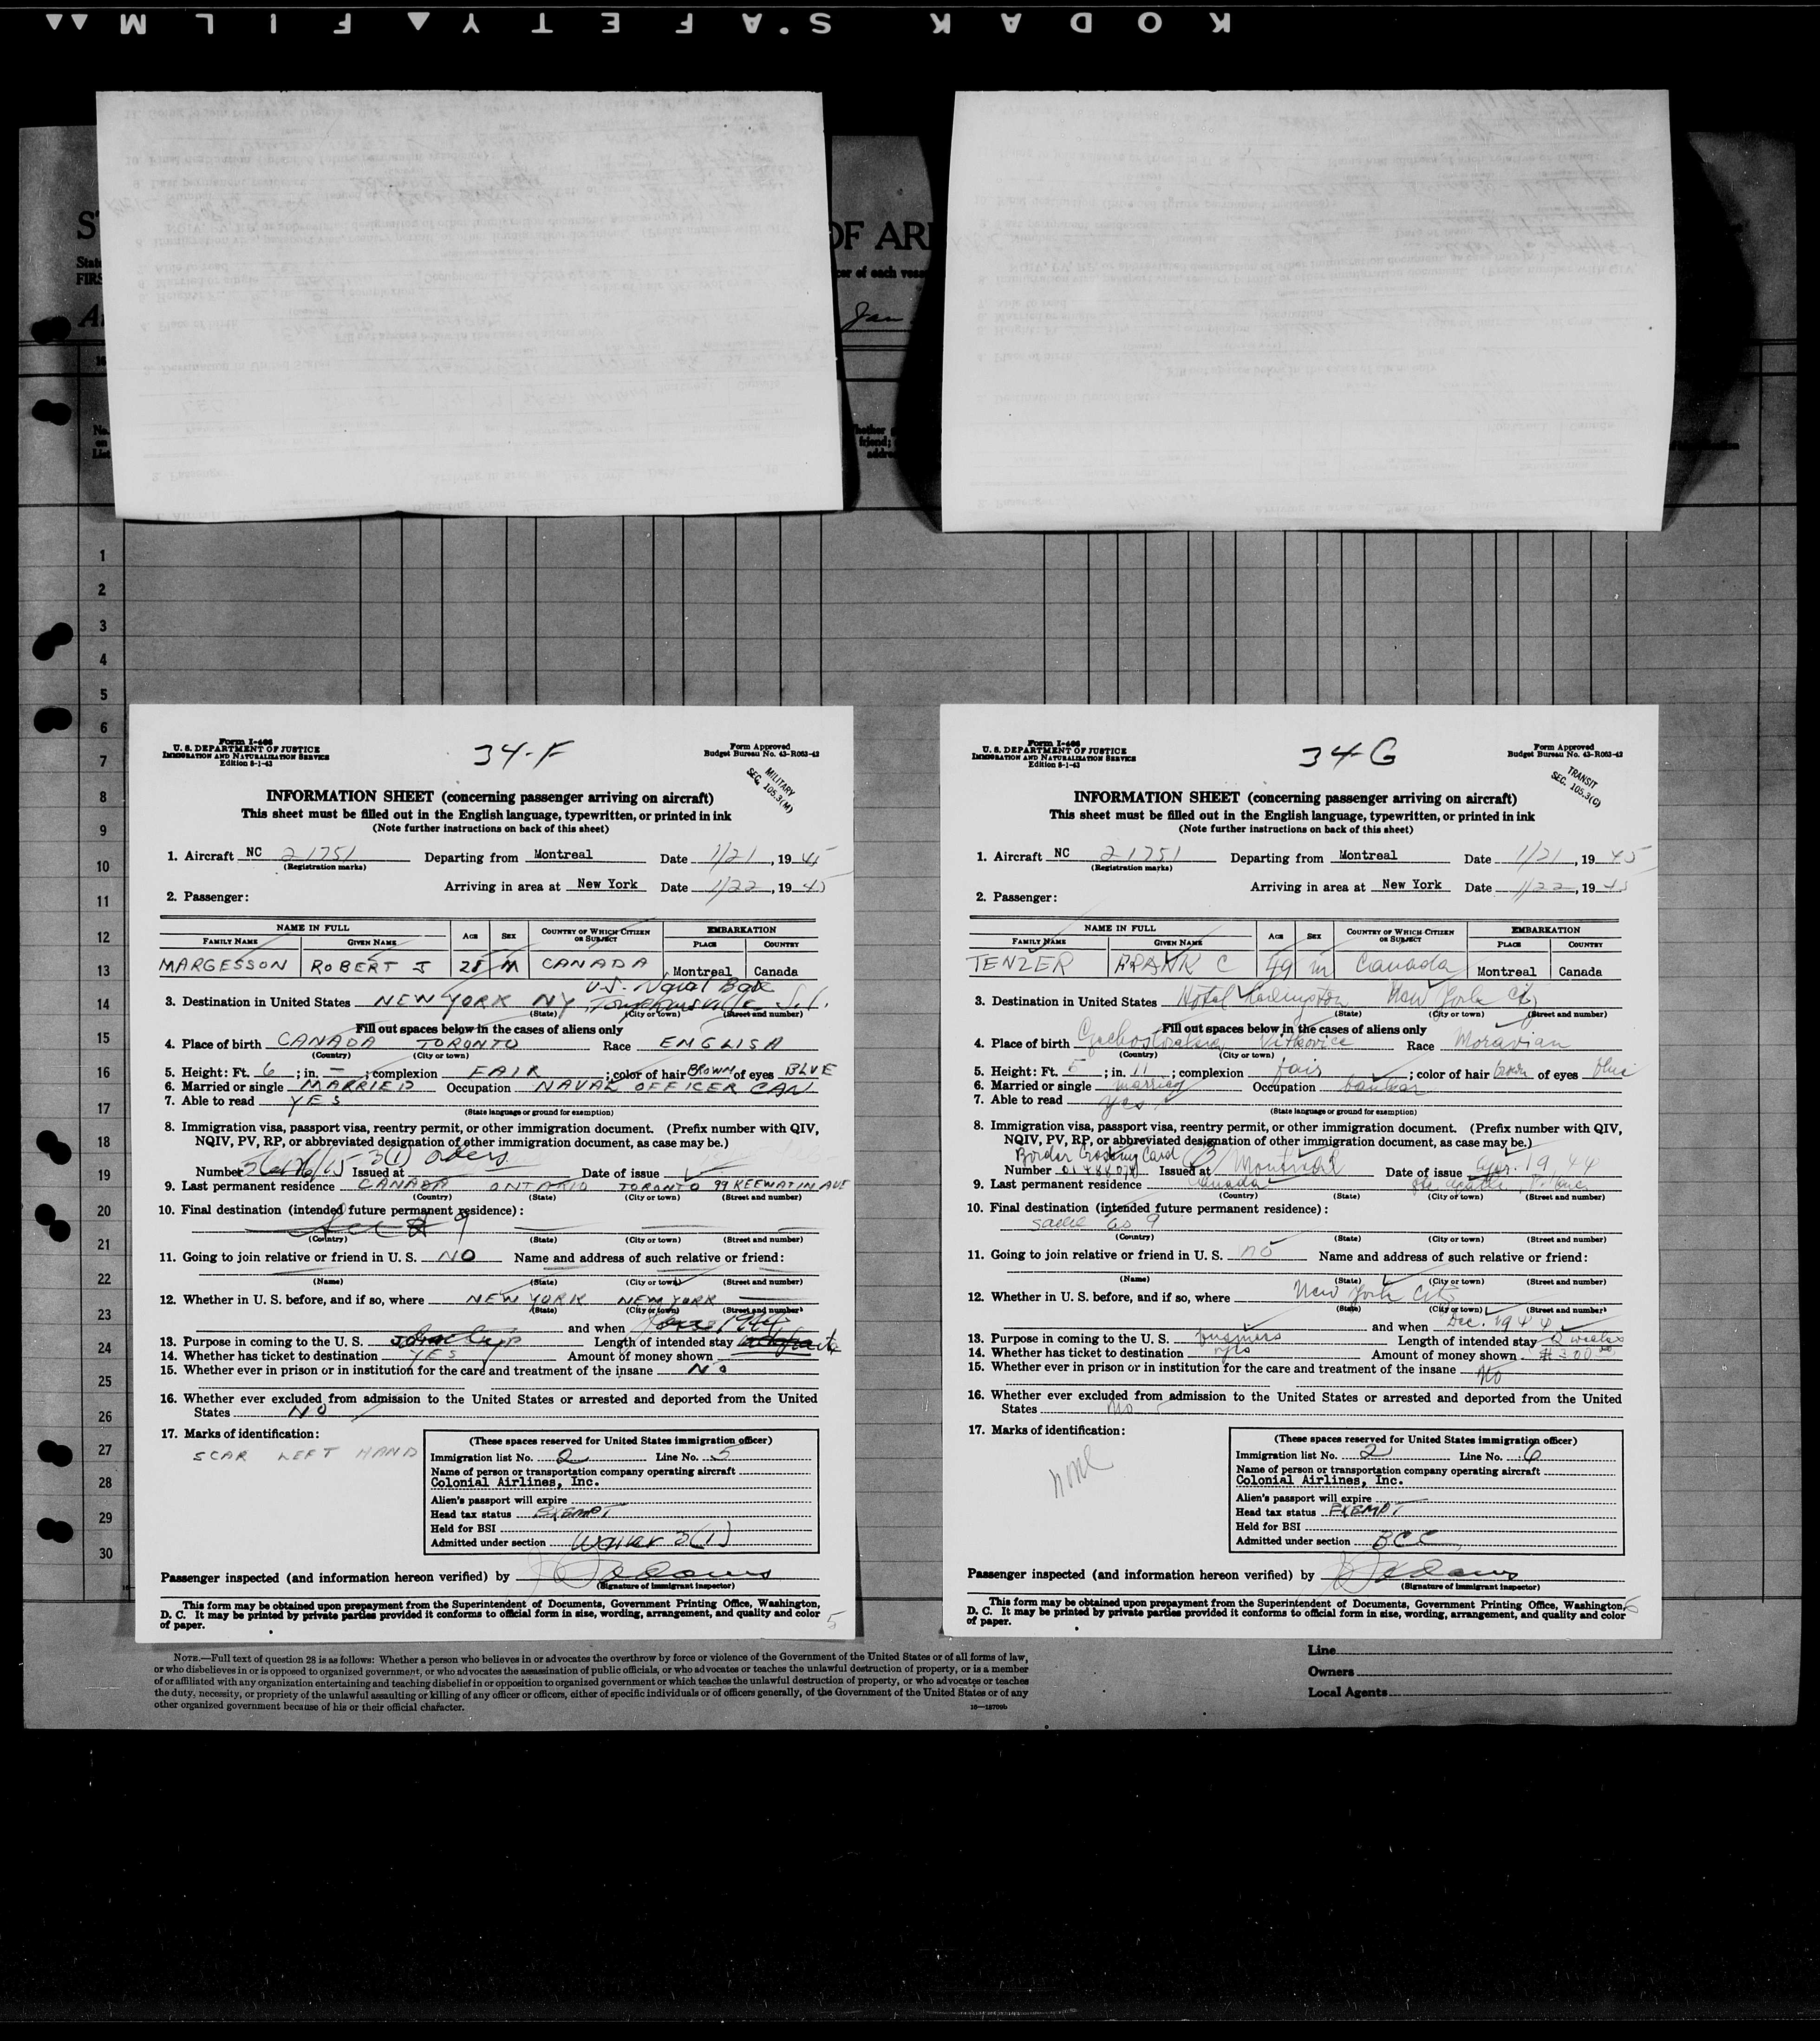 KODAK SAFETY FILM
OF ARI
Jan
1
2
3
4
5
6
7
8
9
10
11
12
13
14
15
16
17
18
19
20
21
22
23
24
25
26
27
28
29
30
Form I-466
U. S. DEPARTMENT OF JUSTICE
IMMIGRATION AND NATURALIZATION SERVICE
Edition 8-1-43
34-F
Form Approved
Budget Bureau No. 43-R063-42
MILITARY
SEC. 105.3(M)
INFORMATION SHEET (concerning passenger arriving on aircraft)
This sheet must be filled out in the English language, typewritten, or printed in ink
(Note further instructions on back of this sheet)
1. Aircraft NC 21751 Departing from Montreal Date 1/21, 1945
(Registration marks)
Arriving in area at New York Date 1/22, 1945
2. Passenger:
NAME IN FULL AGE SEX COUNTRY OF WHICH CITIZEN OR SUBJECT EMBARKATION
FAMILY NAME GIVEN NAME PLACE COUNTRY
MARGESSON ROBERT J 28 M CANADA Montreal Canada
U.S. Naval Base
3. Destination in United States NEW YORK NY, Tompkinsville S.I.
(State) (City or town) (Street and number)
Fill out spaces below in the cases of aliens only
4. Place of birth CANADA TORONTO Race ENGLISH
(Country) (City or town)
5. Height: Ft. 6; in. –; complexion FAIR; color of hair BROWN of eyes BLUE
6. Married or single MARRIED Occupation NAVAL OFFICER CAN
7. Able to read YES
(State language or ground for exemption)
8. Immigration visa, passport visa, reentry permit, or other immigration document. (Prefix number with QIV,
NQIV, PV, RP, or abbreviated designation of other immigration document, as case may be.)
Number 3(1) orders Issued at Date of issue
9. Last permanent residence CANADA ONTARIO TORONTO 99 KEEWATIN AVE
(Country) (State) (City or town) (Street and number)
10. Final destination (intended future permanent residence):
9
(Country) (State) (City or town) (Street and number)
11. Going to join relative or friend in U. S. NO Name and address of such relative or friend:
(Name) (State) (City or town) (Street and number)
12. Whether in U. S. before, and if so, where NEW YORK NEW YORK
(State) (City or town) (Street and number)
and when 1944
13. Purpose in coming to the U. S. Length of intended stay
14. Whether has ticket to destination YES Amount of money shown
15. Whether ever in prison or in institution for the care and treatment of the insane No
16. Whether ever excluded from admission to the United States or arrested and deported from the United
States NO
17. Marks of identification:
SCAR LEFT HAND
(These spaces reserved for United States immigration officer)
Immigration list No. 2 Line No. 5
Name of person or transportation company operating aircraft
Colonial Airlines, Inc.
Alien's passport will expire
Head tax status EXEMPT
Held for BSI
Admitted under section Waiver 3(1)
Passenger inspected (and information hereon verified) by
(Signature of immigrant inspector)
This form may be obtained upon prepayment from the Superintendent of Documents, Government Printing Office, Washington,
D. C. It may be printed by private parties provided it conforms to official form in size, wording, arrangement, and quality and color
of paper.
5
Form I-466
U. S. DEPARTMENT OF JUSTICE
IMMIGRATION AND NATURALIZATION SERVICE
Edition 8-1-43
34-G
Form Approved
Budget Bureau No. 43-R063-42
TRANSIT
SEC. 105.3(C)
INFORMATION SHEET (concerning passenger arriving on aircraft)
This sheet must be filled out in the English language, typewritten, or printed in ink
(Note further instructions on back of this sheet)
1. Aircraft NC 21751 Departing from Montreal Date 1/21, 1945
(Registration marks)
Arriving in area at New York Date 1/22, 1945
2. Passenger:
NAME IN FULL AGE SEX COUNTRY OF WHICH CITIZEN OR SUBJECT EMBARKATION
FAMILY NAME GIVEN NAME PLACE COUNTRY
TENZER FRANK C 49 m Canada Montreal Canada
3. Destination in United States Hotel New York City
(State) (City or town) (Street and number)
Fill out spaces below in the cases of aliens only
4. Place of birth Czechoslovakia Vitkovice Race Moravian
(Country) (City or town)
5. Height: Ft. 5; in. 11; complexion fair; color of hair brown of eyes blue
6. Married or single married Occupation banker
7. Able to read yes
(State language or ground for exemption)
8. Immigration visa, passport visa, reentry permit, or other immigration document. (Prefix number with QIV,
NQIV, PV, RP, or abbreviated designation of other immigration document, as case may be.)
Border Crossing Card
Number Issued at Montreal Date of issue Apr. 19, 44
9. Last permanent residence Canada
(Country) (State) (City or town) (Street and number)
10. Final destination (intended future permanent residence):
same as 9
(Country) (State) (City or town) (Street and number)
11. Going to join relative or friend in U. S. no Name and address of such relative or friend:
(Name) (State) (City or town) (Street and number)
12. Whether in U. S. before, and if so, where New York City
(State) (City or town) (Street and number)
and when Dec. 1944
13. Purpose in coming to the U. S. business Length of intended stay 2 weeks
14. Whether has ticket to destination yes Amount of money shown $300.00
15. Whether ever in prison or in institution for the care and treatment of the insane No
16. Whether ever excluded from admission to the United States or arrested and deported from the United
States No
17. Marks of identification:
none
(These spaces reserved for United States immigration officer)
Immigration list No. 2 Line No. 6
Name of person or transportation company operating aircraft
Colonial Airlines, Inc.
Alien's passport will expire
Head tax status EXEMPT
Held for BSI
Admitted under section BCC
Passenger inspected (and information hereon verified) by
(Signature of immigrant inspector)
This form may be obtained upon prepayment from the Superintendent of Documents, Government Printing Office, Washington,
D. C. It may be printed by private parties provided it conforms to official form in size, wording, arrangement, and quality and color
of paper.
6
NOTE.—Full text of question 28 is as follows: Whether a person who believes in or advocates the overthrow by force or violence of the Government of the United States or of all forms of law,
or who disbelieves in or is opposed to organized government, or who advocates the assassination of public officials, or who advocates or teaches the unlawful destruction of property, or is a member
of or affiliated with any organization entertaining and teaching disbelief in or opposition to organized government or which teaches the unlawful destruction of property, or who advocates or teaches
the duty, necessity, or propriety of the unlawful assaulting or killing of any officer or officers, either of specific individuals or of officers generally, of the Government of the United States or of any
other organized government because of his or their official character.
Line
Owners
Local Agents